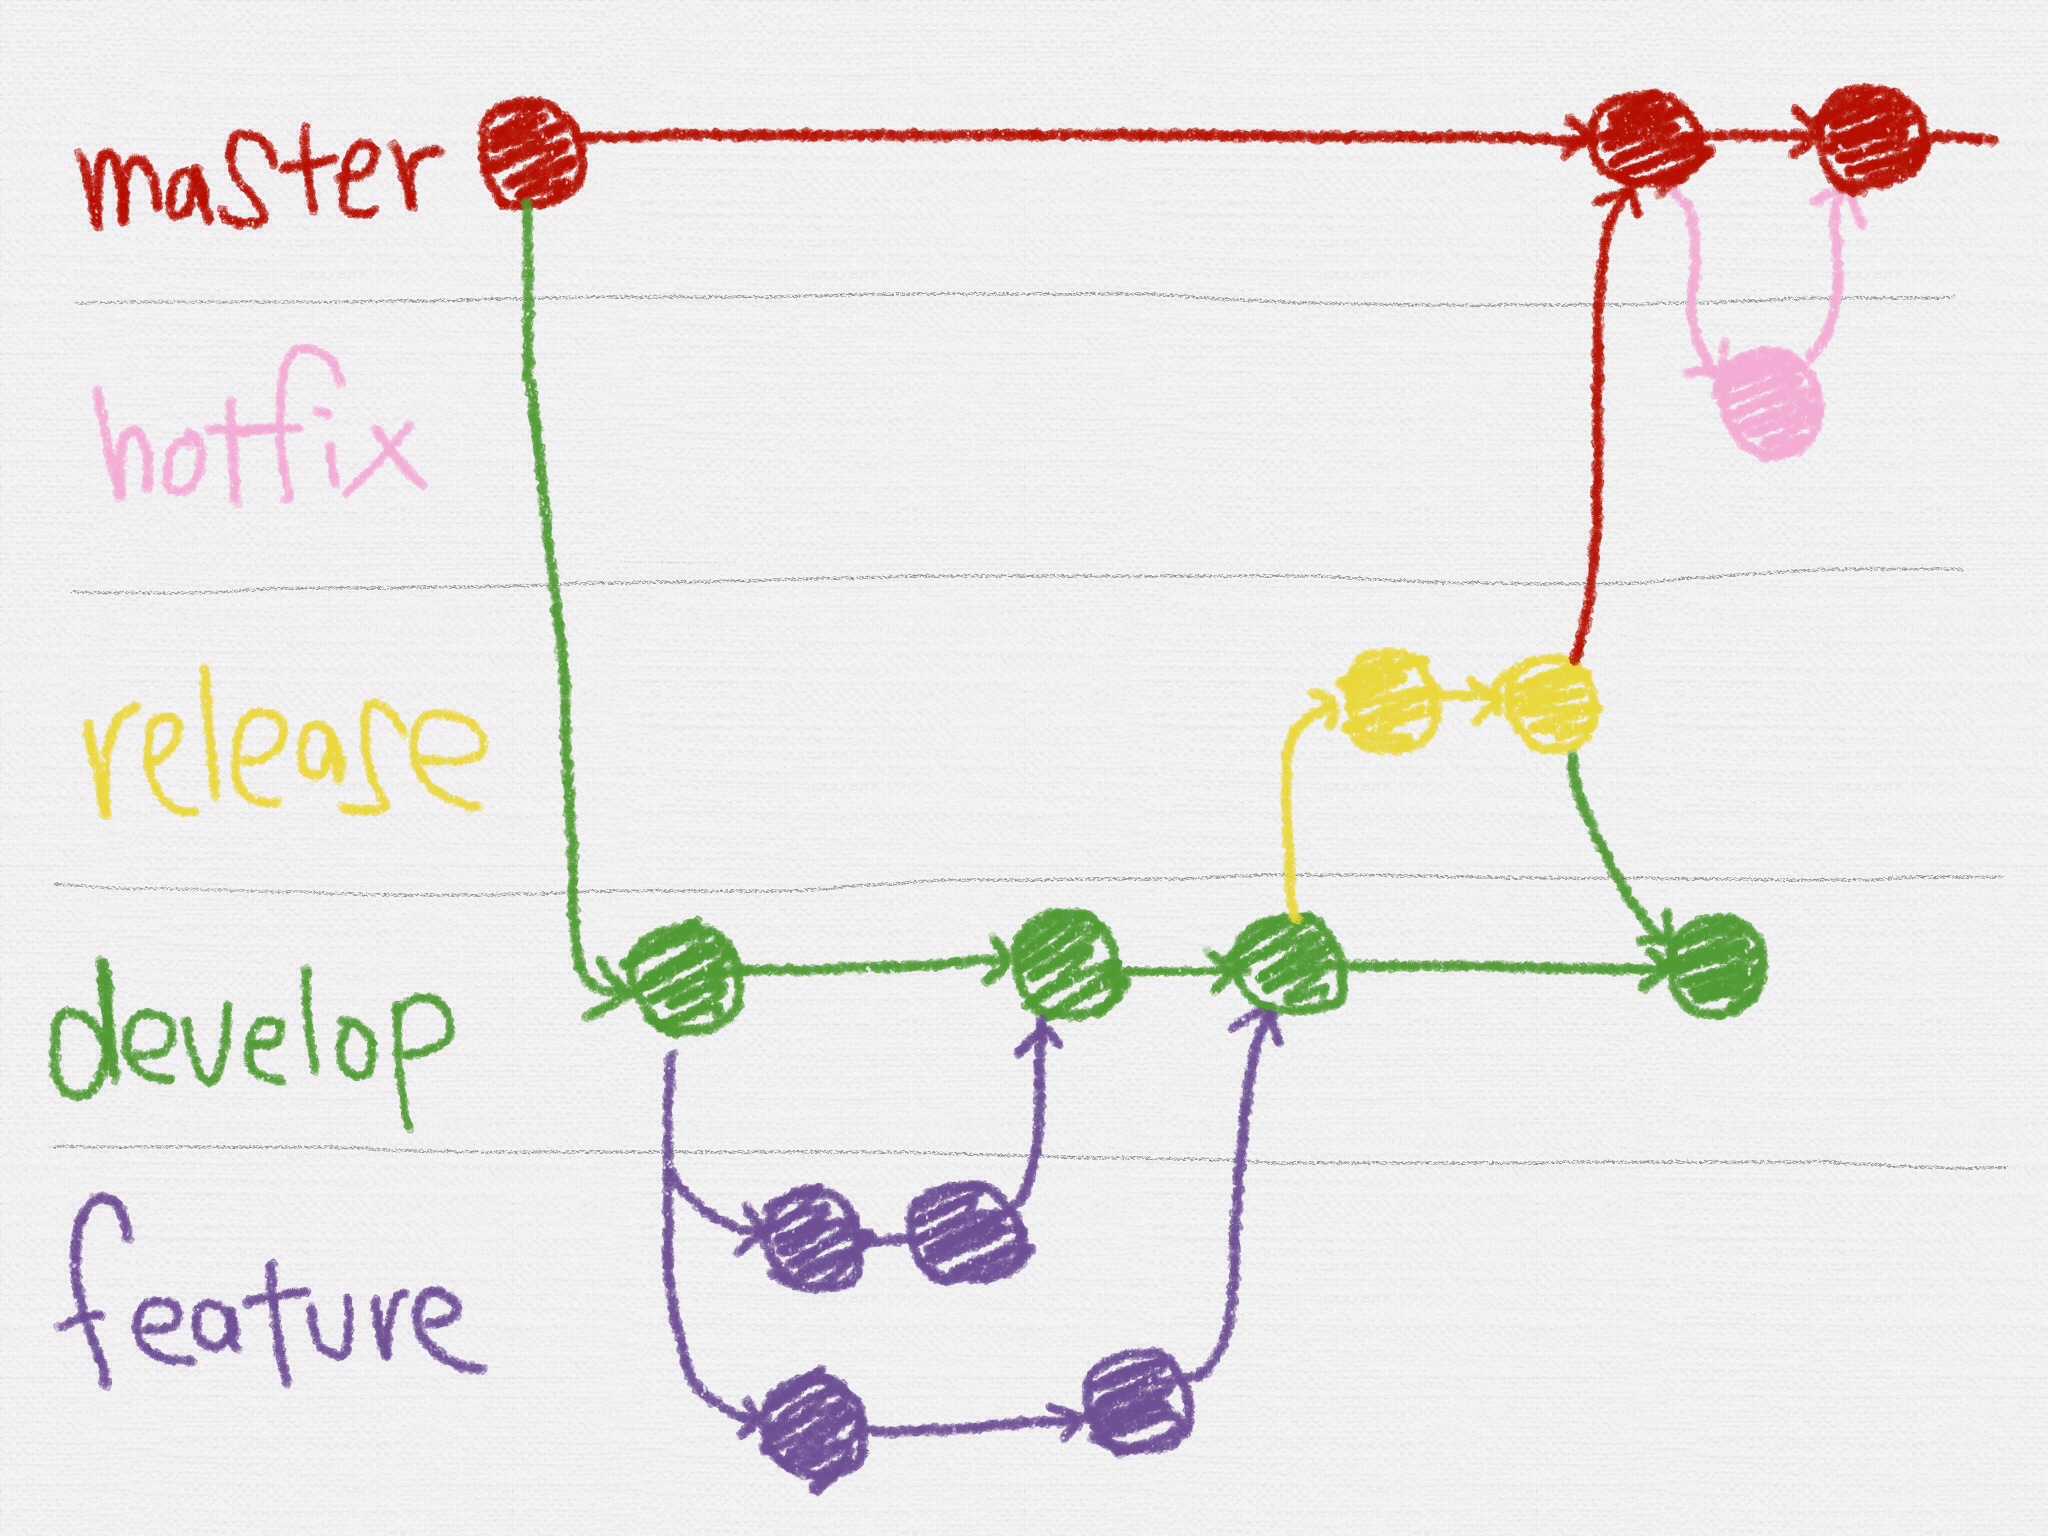 master
hotfix
release
develop
feature